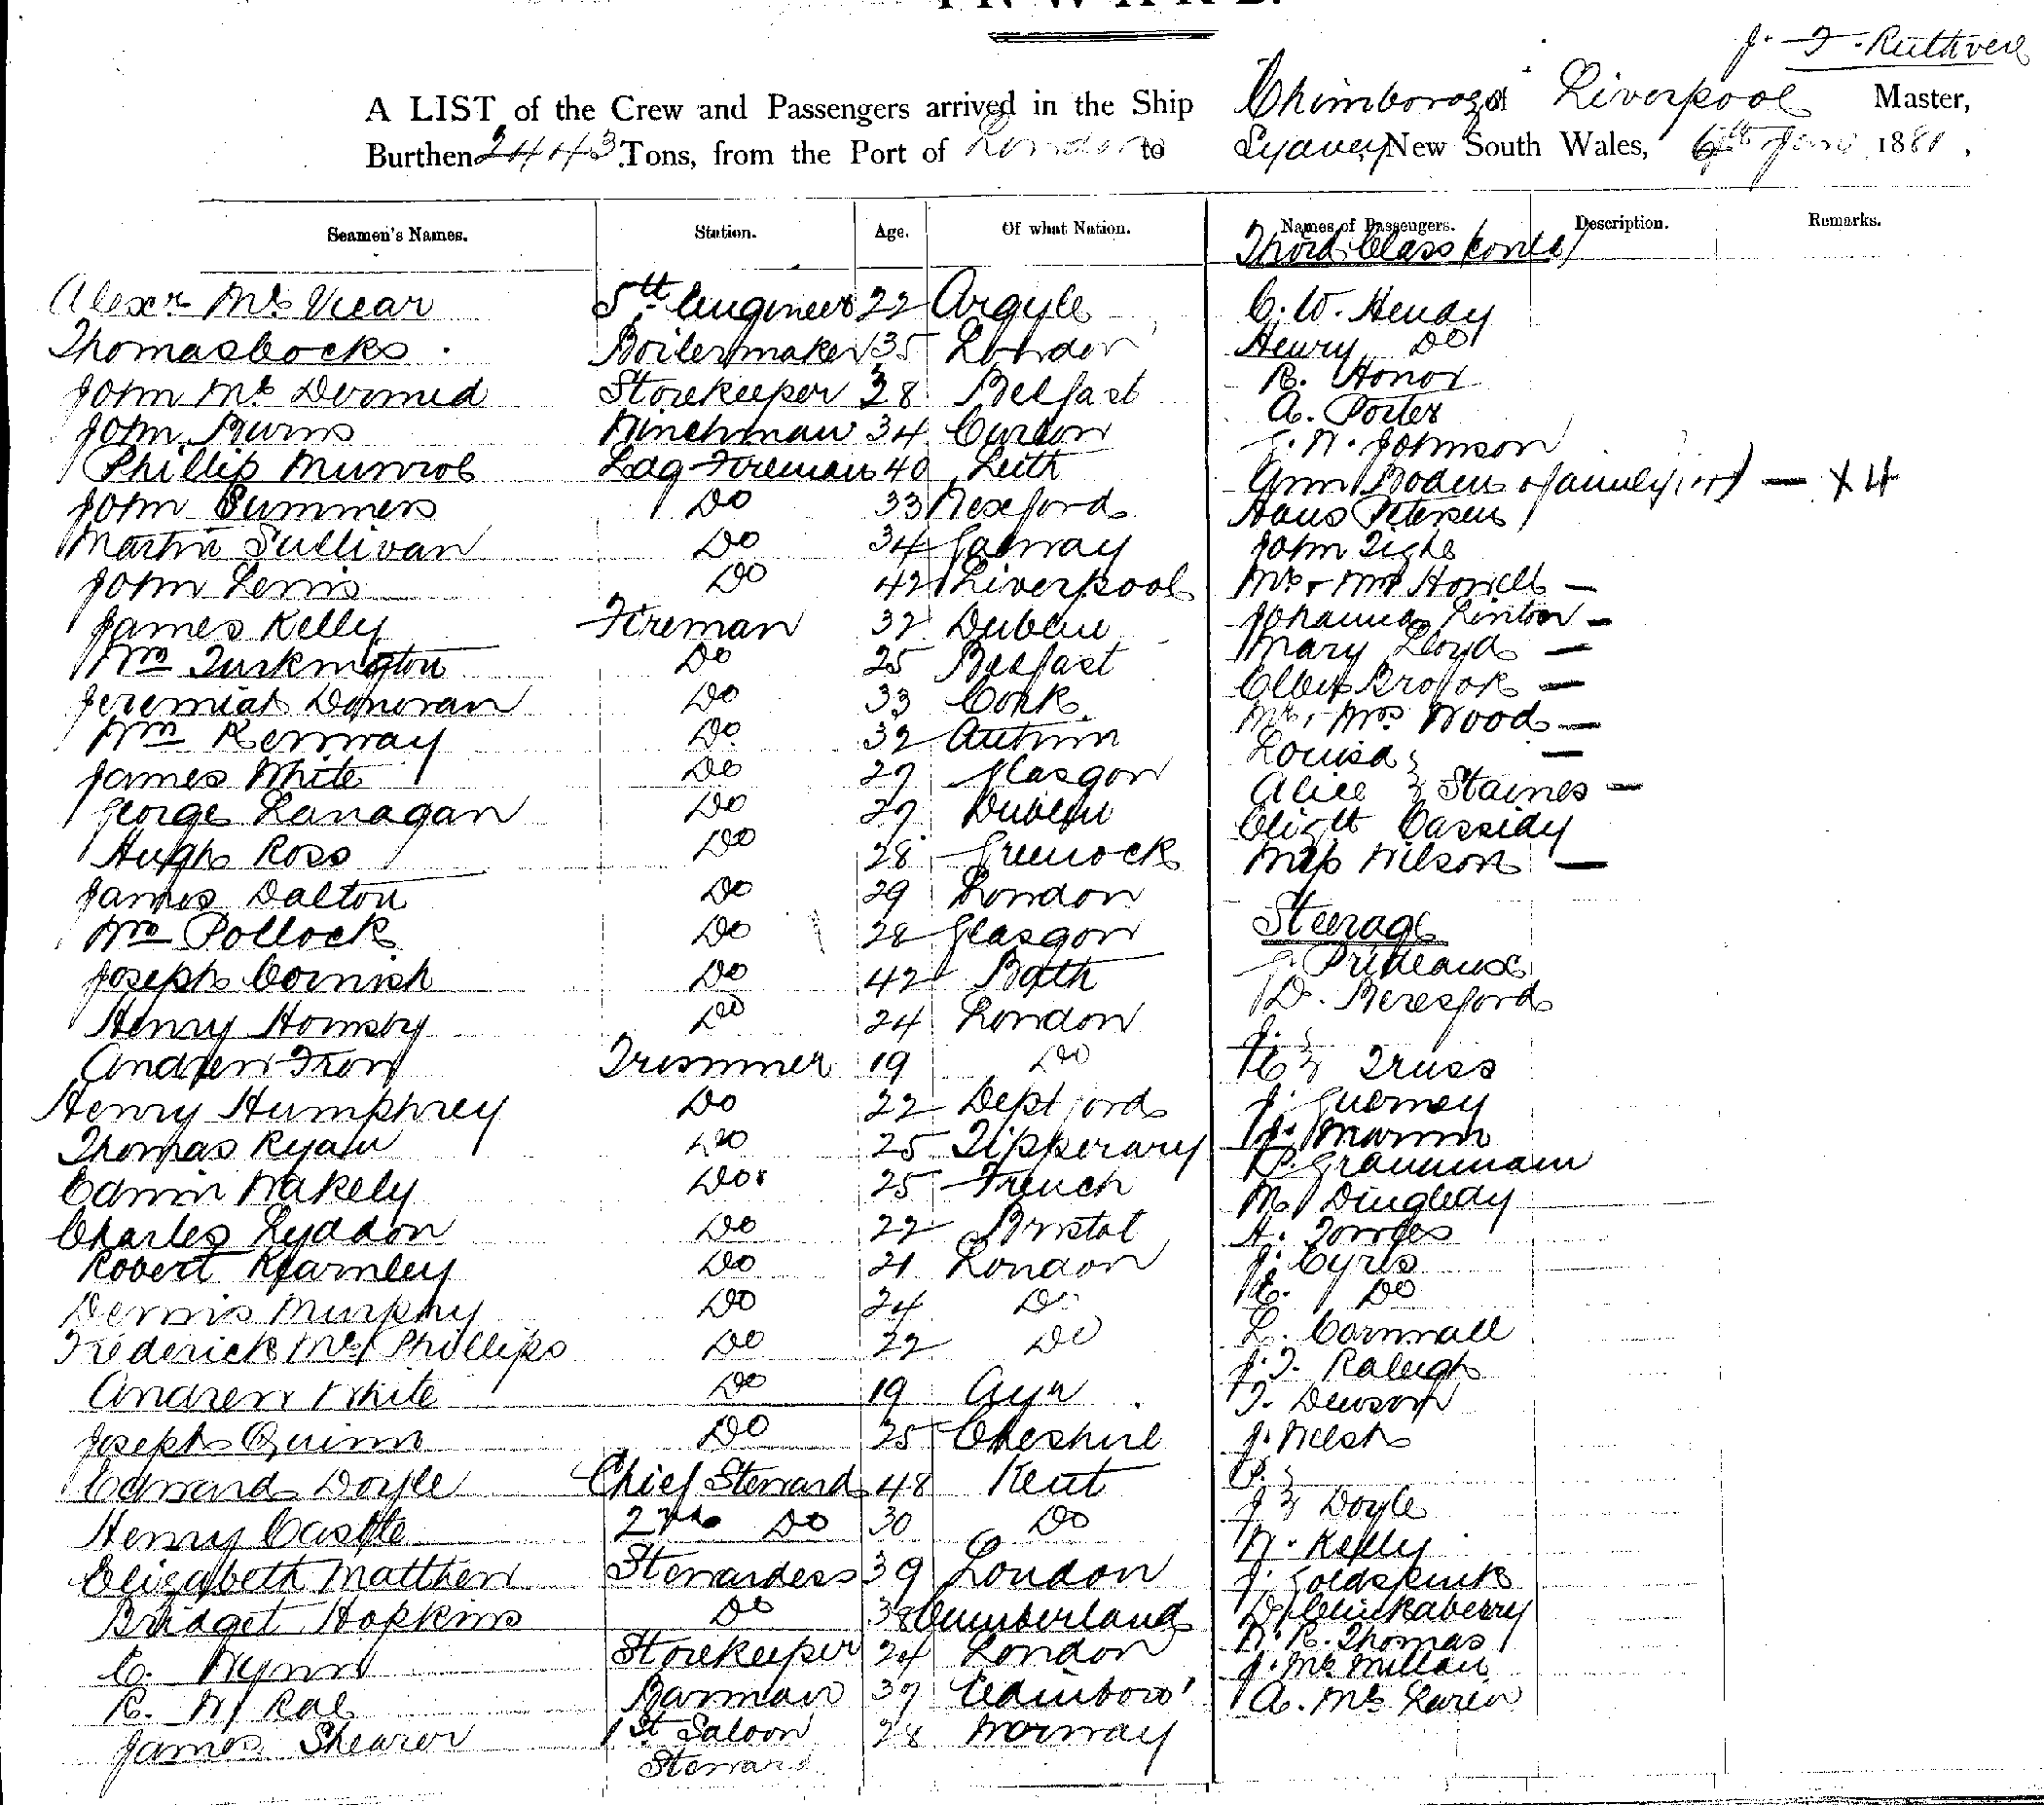 INWARD.
J. F. Ruthven
A LIST of the Crew and Passengers arrived in the Ship Chimborazo of Liverpool Master,
Burthen 2443 Tons, from the Port of London to Sydney, New South Wales, 6th Jany 1881.
Seamen's Names. Station. Age. Of what Nation. Names of Passengers. Description. Remarks.
Third Class
Alexr Mc Vicar 5th Engineer 22 Argyle C. W. Hendy
Thomas Cocks Boilermaker 35 London Henry Do
John Mc Dermid Storekeeper 38 Belfast R. Honor
John Burns Winchman 34 A. Porter
Phillip Munroe Ldg Fireman 40 Leith Johnson
John Summers Do 33 Wexford Ann Boden & family — X 4
Martin Sullivan Do 34 Galway Hans Petersen
John Lewis Do 42 Liverpool John Tighe
James Kelly Fireman 32 Dublin Mr & Mrs Howell —
Wm Turkington Do 25 Belfast Johanna Linton —
Jeremiah Donovan Do 33 Cork Mary Lloyd —
Wm Kenway Do 32 Antrim Brook —
James White Do 27 Glasgow Mr & Mrs Wood —
George Lanagan Do 27 Dublin Louisa } —
Hugh Ross Do 28 Greenock Alice } Staines —
James Dalton Do 29 London Elizth Cassidy
Wm Pollock Do 28 Glasgow Miss Wilson —
Joseph Cornish Do 42 Bath Steerage
Henry Hornsby Do 24 London J. Prideaux
Andrew Tron Trimmer 19 Do D. Beresford
Henry Humphrey Do 22 Deptford J. }
Thomas Ryan Do 25 Tipperary H } Truss
Edwin Wakely Do 25 French J. Guernsey
Charles Lyddon Do 22 Bristol J. Mamm
Robert Kearnley Do 21 London Grannmam
Dennis Murphy Do 24 Do M. Dingledy
Frederick Mc Phillips Do 22 Do H. Towles
Andrew White Do 19 Ayr J. Eyres
Joseph Quinn Do 25 Cheshire E. Do
Edward Doyle Chief Steward 48 Kent L. Cornwall
Henry Castle 2nd Do 30 Do J. T. Raleigh
Elizabeth Matthew Stewardess 39 London T. Dewson
Bridget Hopkins Do 38 Cumberland J. Welsh
C. Wynn Storekeeper 24 London P. }
R. W. Rae Barman 37 Edinboro' J } Doyle
James Shearer 1st Saloon Steward 28 Norway W. Kelly
J. Goldspink
D. Clinkaberry
W. R. Thomas
J. Mc Millan
A. Mc Laren